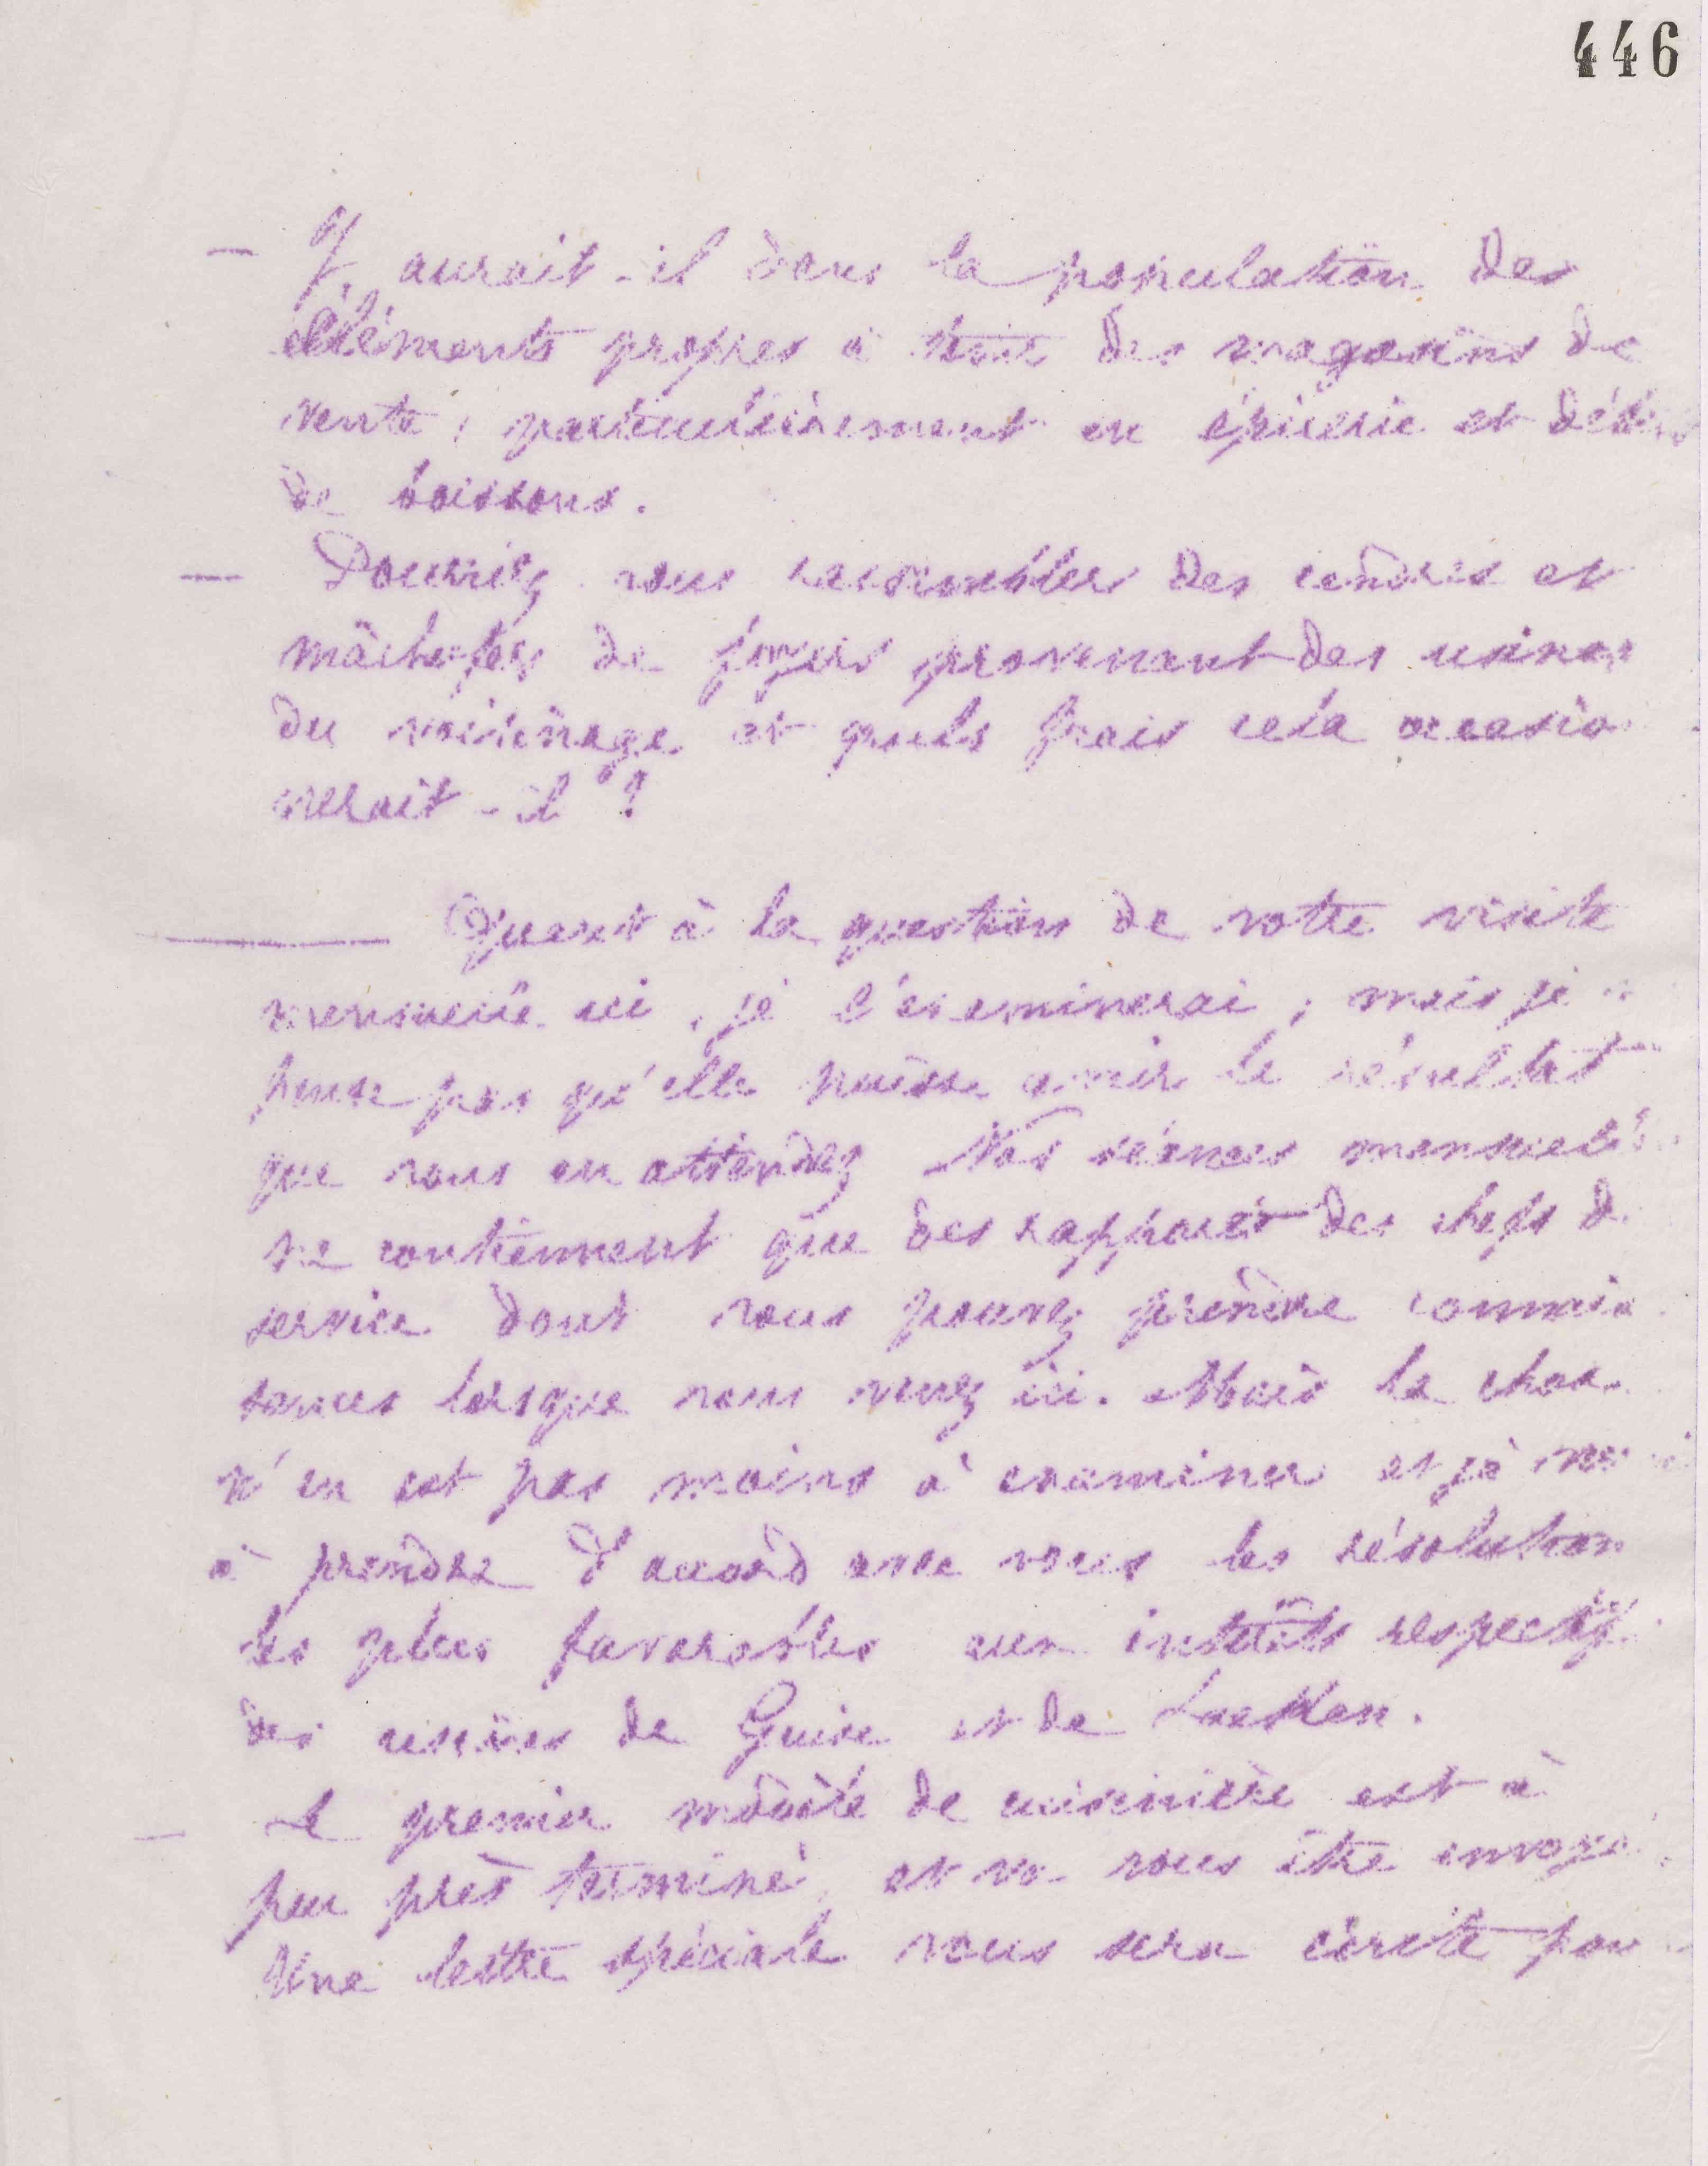 446
— Y aurait-il dans la population des
éléments propres à tenir des magasins de
vente, particulièrement en épicerie et débit
de boissons.
— Pourriez vous rassembler des cendres et
mâchefers de foyers provenant des usines
du voisinage et quels frais cela occasio
nerait-il ?
— Quant à la question de votre visite
mensuelle ici, je l'examinerai, mais je
pense pas qu'elle puisse avoir le résultat
que vous en attendez Nos séances mensuelles
ne contiennent que des rapports des chefs de
service dont vous pouvez prendre connais
sances lorsque vous venez ici. Mais la chose
n'en est pas moins à examiner et à
à prendre d'accord avec vous les résolutions
les plus favorables aux intérêts respectifs
des usines de Guise et de Laeken.
— Le premier modèle de cuisinière est à
peu près terminé, et va vous être envoyé.
Une lettre spéciale vous sera écrite pour